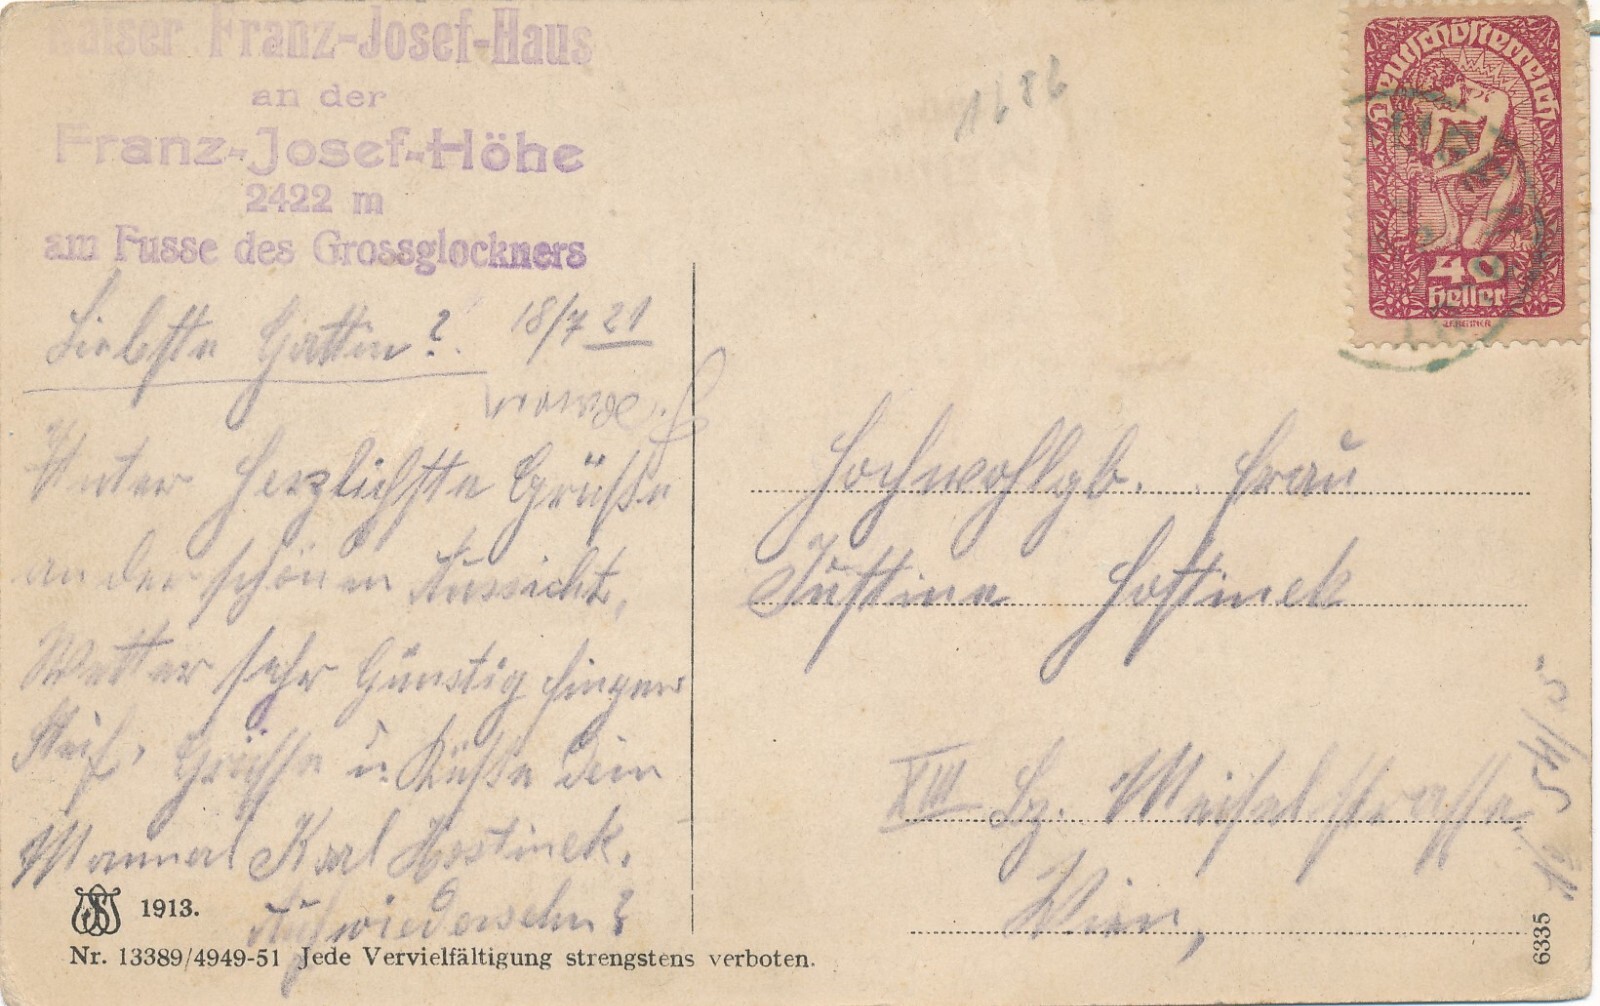 Kaiser Franz-Josef-Haus
an der
Franz-Josef-Höhe
2422 m
am Fusse des Grossglockners
Liebste Gattin? 18/7 21
Unter herzlichste Grüße
an der schönen Aussicht,
Wetter sehr Günstig finger
Steif, Grüsse u. Küsse dein
Mannerl Karl Hostinek.
Auf wiedersehn?
1913.
Nr. 13389/4949-51 Jede Vervielfältigung strengstens verboten.
1686
Deutschösterreich
40
Heller
Hochwohlgb. Frau
Justine Hostinek
XIII Bz. Meiselstrasse
Wien,
6335